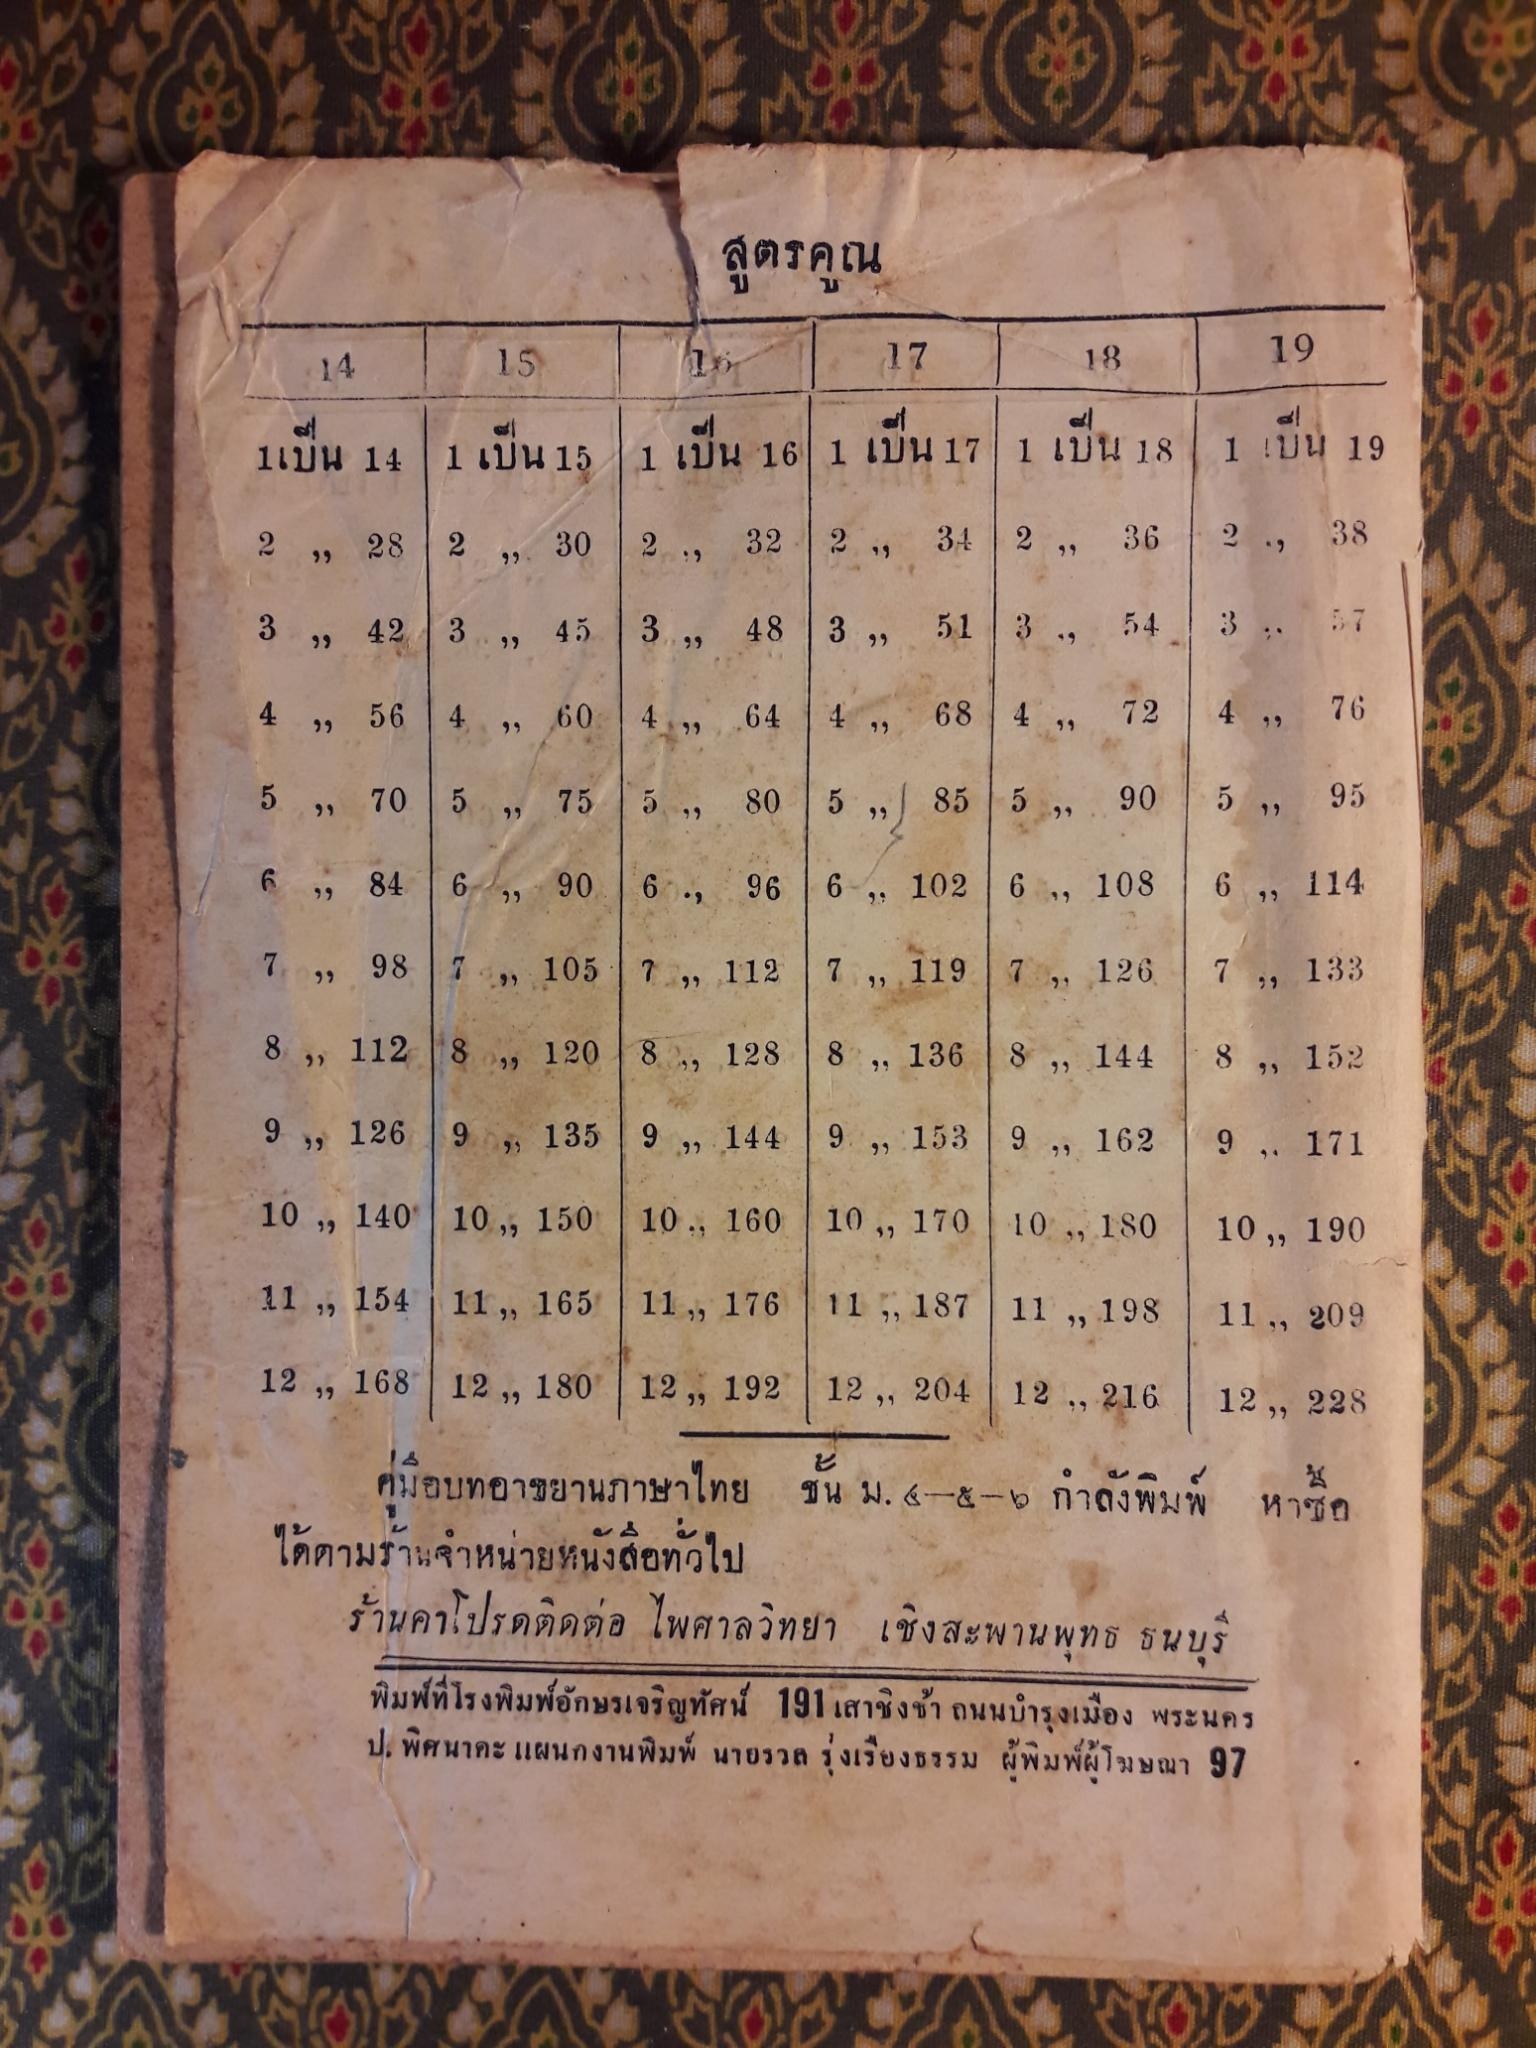 สูตรคูณ
14 15 16 17 18 19
1 เป็น 14 1 เป็น 15 1 เป็น 16 1 เป็น 17 1 เป็น 18 1 เป็น 19
2 „ 28 2 „ 30 2 „ 32 2 „ 34 2 „ 36 2 „ 38
3 „ 42 3 „ 45 3 „ 48 3 „ 51 3 „ 54 3 „ 57
4 „ 56 4 „ 60 4 „ 64 4 „ 68 4 „ 72 4 „ 76
5 „ 70 5 „ 75 5 „ 80 5 „ 85 5 „ 90 5 „ 95
6 „ 84 6 „ 90 6 „ 96 6 „ 102 6 „ 108 6 „ 114
7 „ 98 7 „ 105 7 „ 112 7 „ 119 7 „ 126 7 „ 133
8 „ 112 8 „ 120 8 „ 128 8 „ 136 8 „ 144 8 „ 152
9 „ 126 9 „ 135 9 „ 144 9 „ 153 9 „ 162 9 „ 171
10 „ 140 10 „ 150 10 „ 160 10 „ 170 10 „ 180 10 „ 190
11 „ 154 11 „ 165 11 „ 176 11 „ 187 11 „ 198 11 „ 209
12 „ 168 12 „ 180 12 „ 192 12 „ 204 12 „ 216 12 „ 228
คู่มือบทอาขยานภาษาไทย ชั้น ม. ๔—๕—๖ กำลังพิมพ์ หาซื้อ
ได้ตามร้านจำหน่ายหนังสือทั่วไป
ร้านคาโปรดติดต่อ ไพศาลวิทยา เชิงสะพานพุทธ ธนบุรี
พิมพ์ที่โรงพิมพ์อักษรเจริญทัศน์ 191 เสาชิงช้า ถนนบำรุงเมือง พระนคร
ป. พิศนาคะ แผนกงานพิมพ์ นายรวล รุ่งเรืองธรรม ผู้พิมพ์ผู้โฆษณา 97